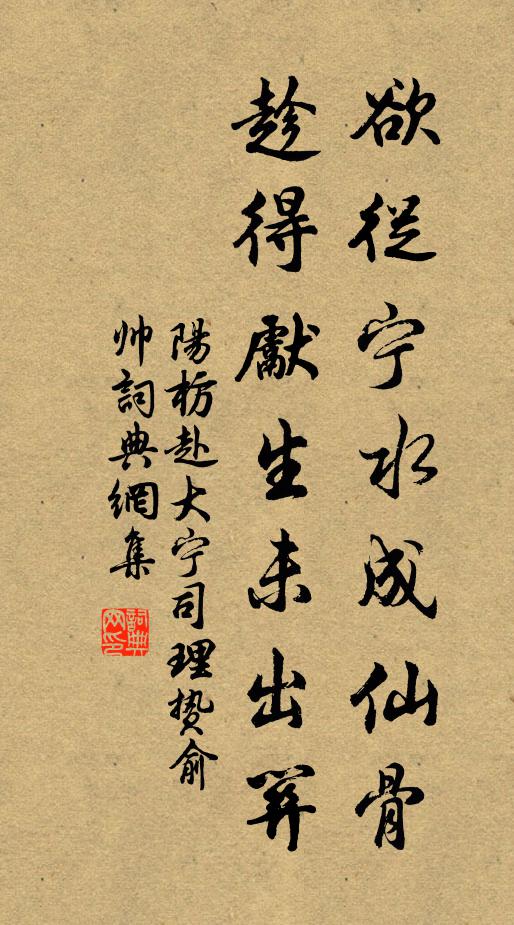 欲從宁水成仙骨
趁得獻生未出
陽枋赴大宁司理贽俞
帅詞典網集
詞典网印